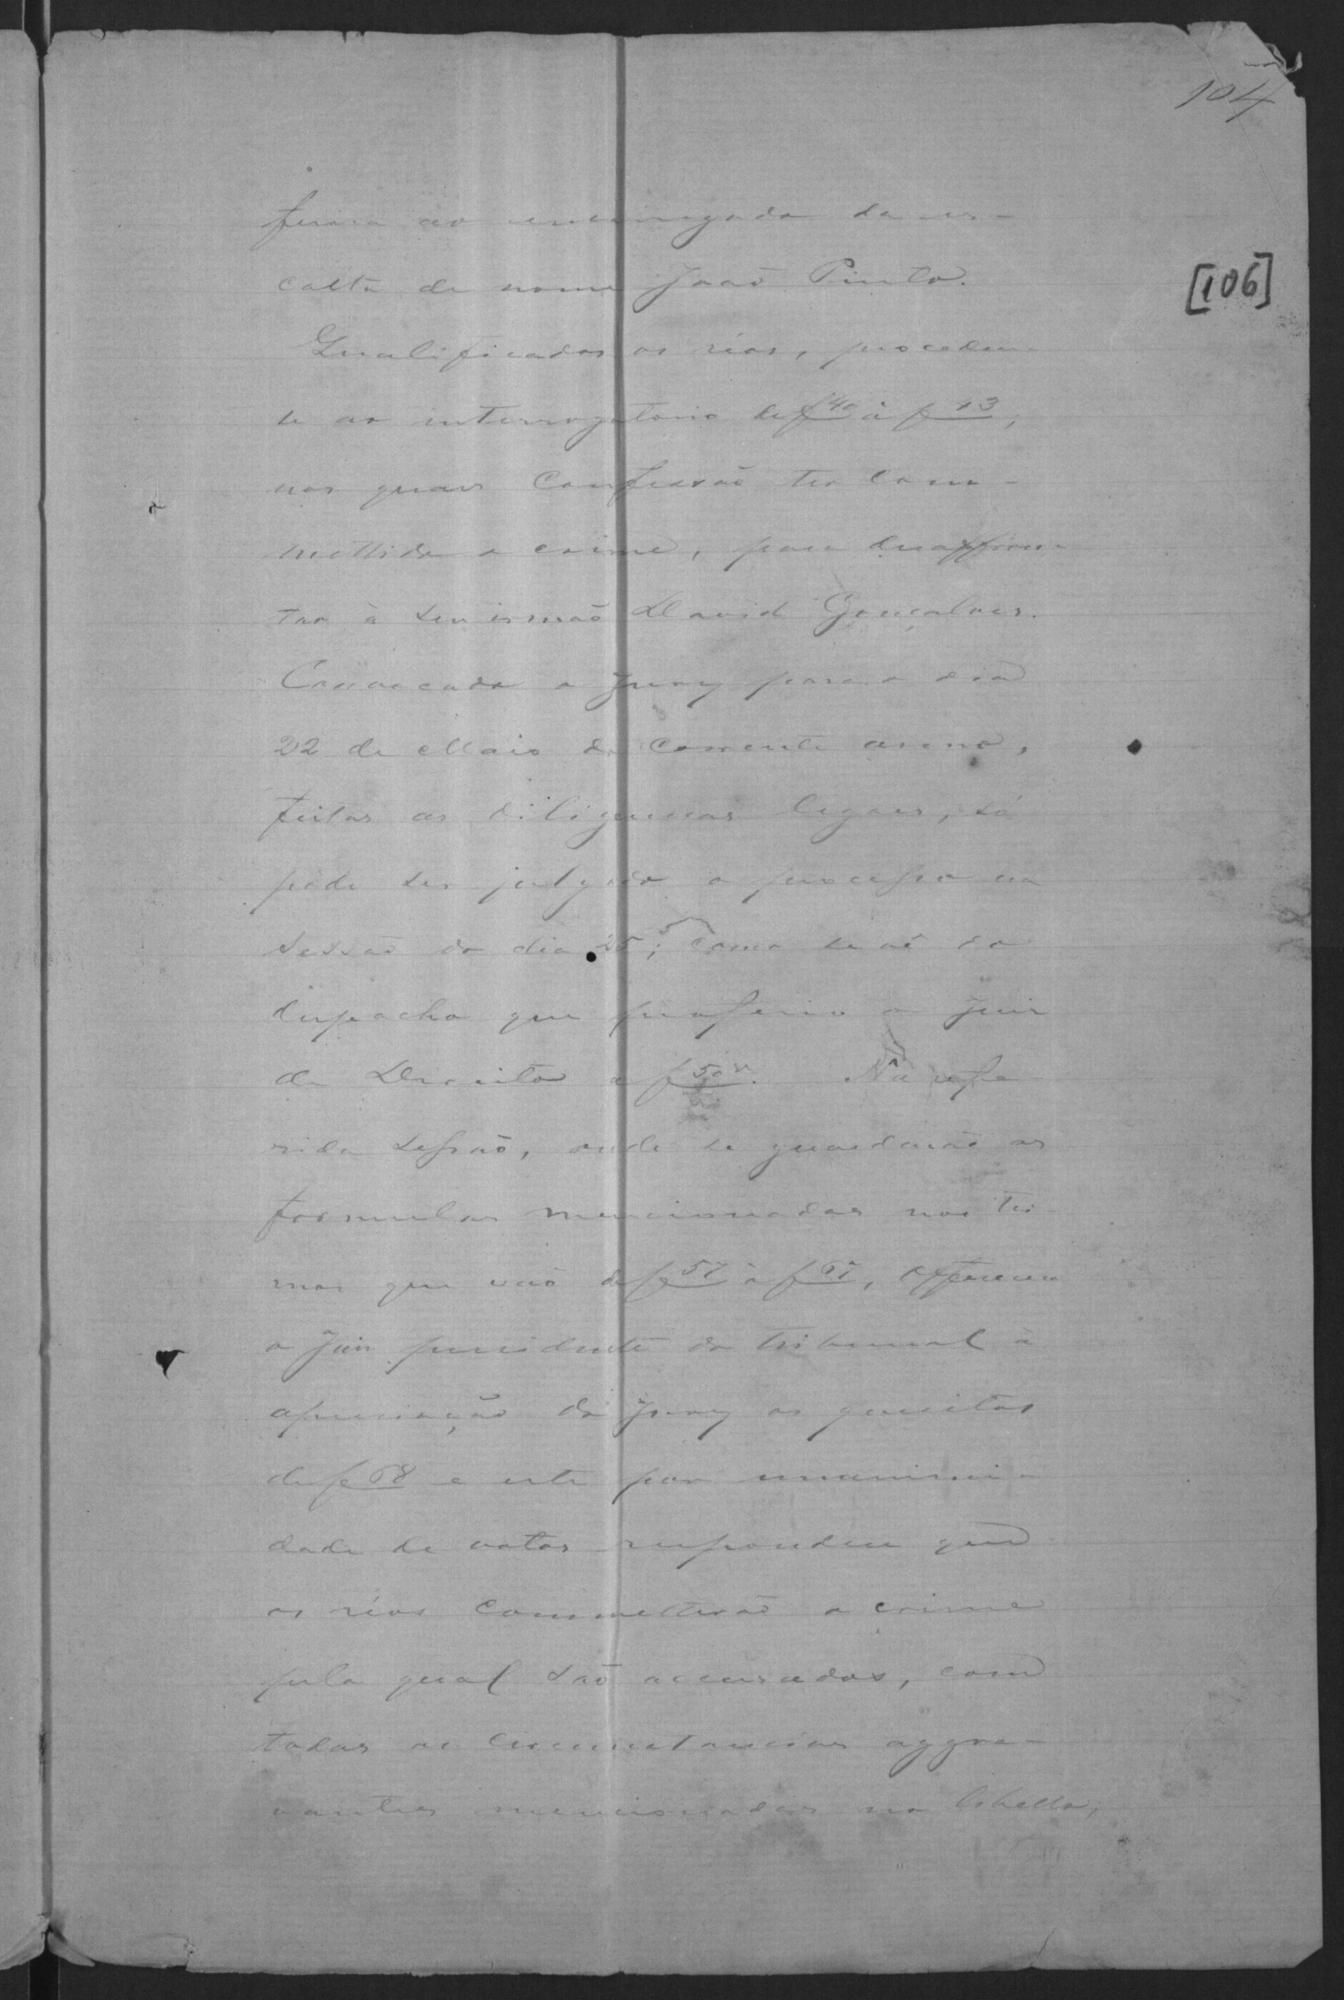 104
[106]
feriva ao encarregado da es-
colta de nome João Pinto.
Qualificados os réos, procedeu-
se ao interrogatorio de f 40 à f 43,
nos quaes confessão ter com-
mettido o crime, para desaffron-
tar à seu irmão David Gonçalves.
Convocado o Jury para o dia
22 de Maio do corrente anno,
feitas as diligencias legaes, só
pôde ser julgado o processo na
sessão do dia 25; como se vê do
despacho que proferio o Juiz
de Direito a f 50v. Na refe
rida sessão, onde se guardarão as
formulas mencionadas nos ter-
mos que vão de f 57 à f 67, offereceu
o Juiz presidente do tribunal à
apreciação do Jury os quesitos
de f 68 e este por unanimi-
dade de votos respondeu que
os réos commetterão o crime
pelo qual são accusados, com
todas as circumstancias aggra-
vantes mencionadas no libello,